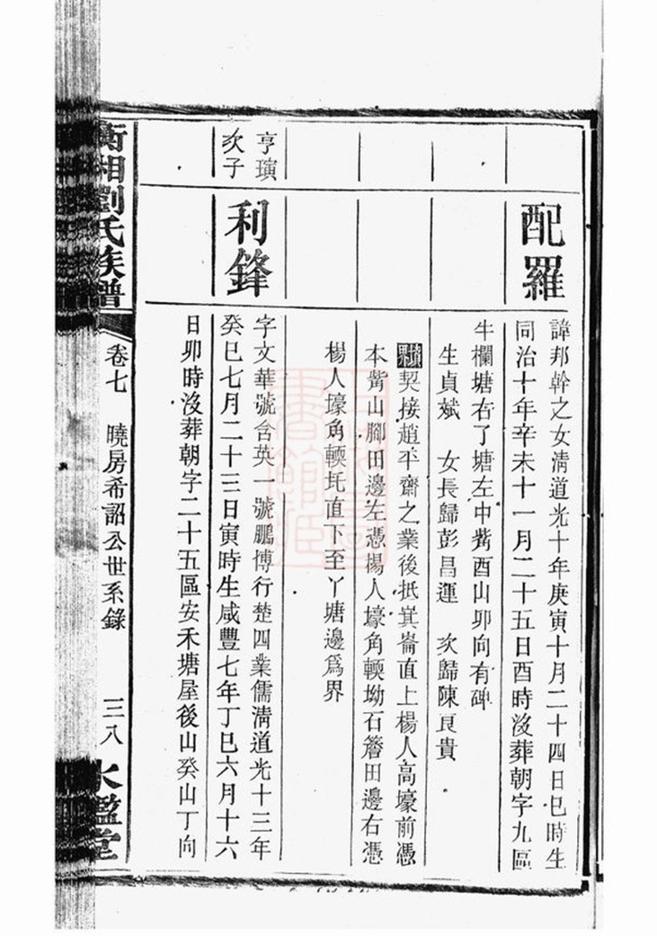 配羅
諱邦幹之女淸道光十年庚寅十月二十四日巳時生
同治十年辛未十一月二十五日酉時沒葬朝字九區
牛欄塘右了塘左中嘴酉山卯向有碑
生貞斌 女長歸彭昌運 次歸陳良貴
契接趙平齋之業後抵萁崙直上楊人高壕前憑
本嘴山腳田邊左憑楊人壕角輭坳石簷田邊右憑
楊人壕角輭圫直下至丫塘邊爲界
亨璜
次子
利鋒
字文華號含英一號鵬博行楚四業儒淸道光十三年
癸巳七月二十三日寅時生咸豐七年丁巳六月十六
日卯時沒葬朝字二十五區安禾塘屋後山癸山丁向
衡湘劉氏族譜
卷七 曉房希詔公世系錄
三八
堂